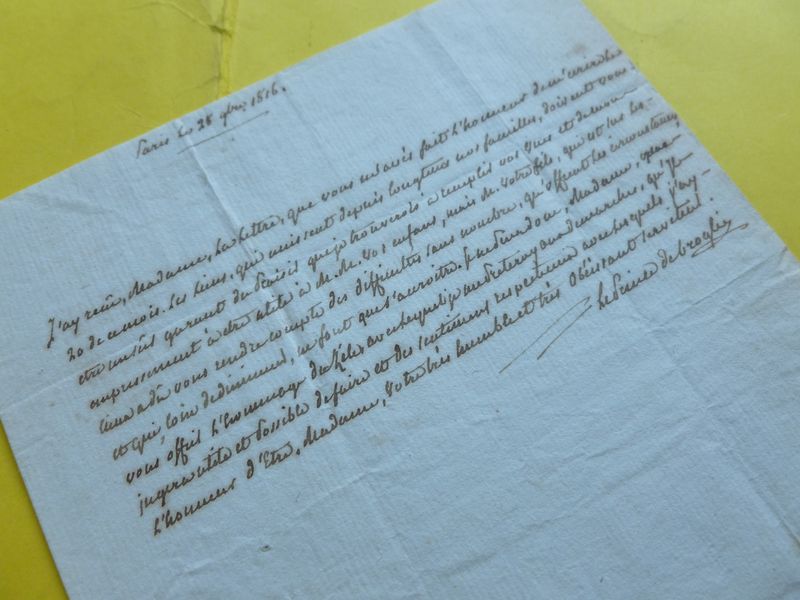 Paris le 28 9bre 1816.
J'ay reçu, Madame, La Lettre, que vous m'avés fait L'honneur de m'ecrire le
20 de ce mois. Les liens, qui unissent depuis longtems nos familles, doivent vous
etre un sûr garant du desir que je trouverois a remplir vos vues et de mon
empressement à etre utile à M.M. vos enfans, mais M. votre fils, qui est sur les
lieux a dû vous rendre compte des difficultés sans nombre, qu'offrent les circonstances
et qui, loin de diminuer, ne font que s'accroitre. Je ne puis donc, Madame, que
vous offrir L'hommage du Zèle avec lequel je me preterai aux demarches, qu'il
jugera utile et possible de faire et des sentimens respectueux avec lesquels j'ay
L'honneur d'Etre, Madame, Votre très humble et très Obeissant serviteur.
Le Prince de Broglie